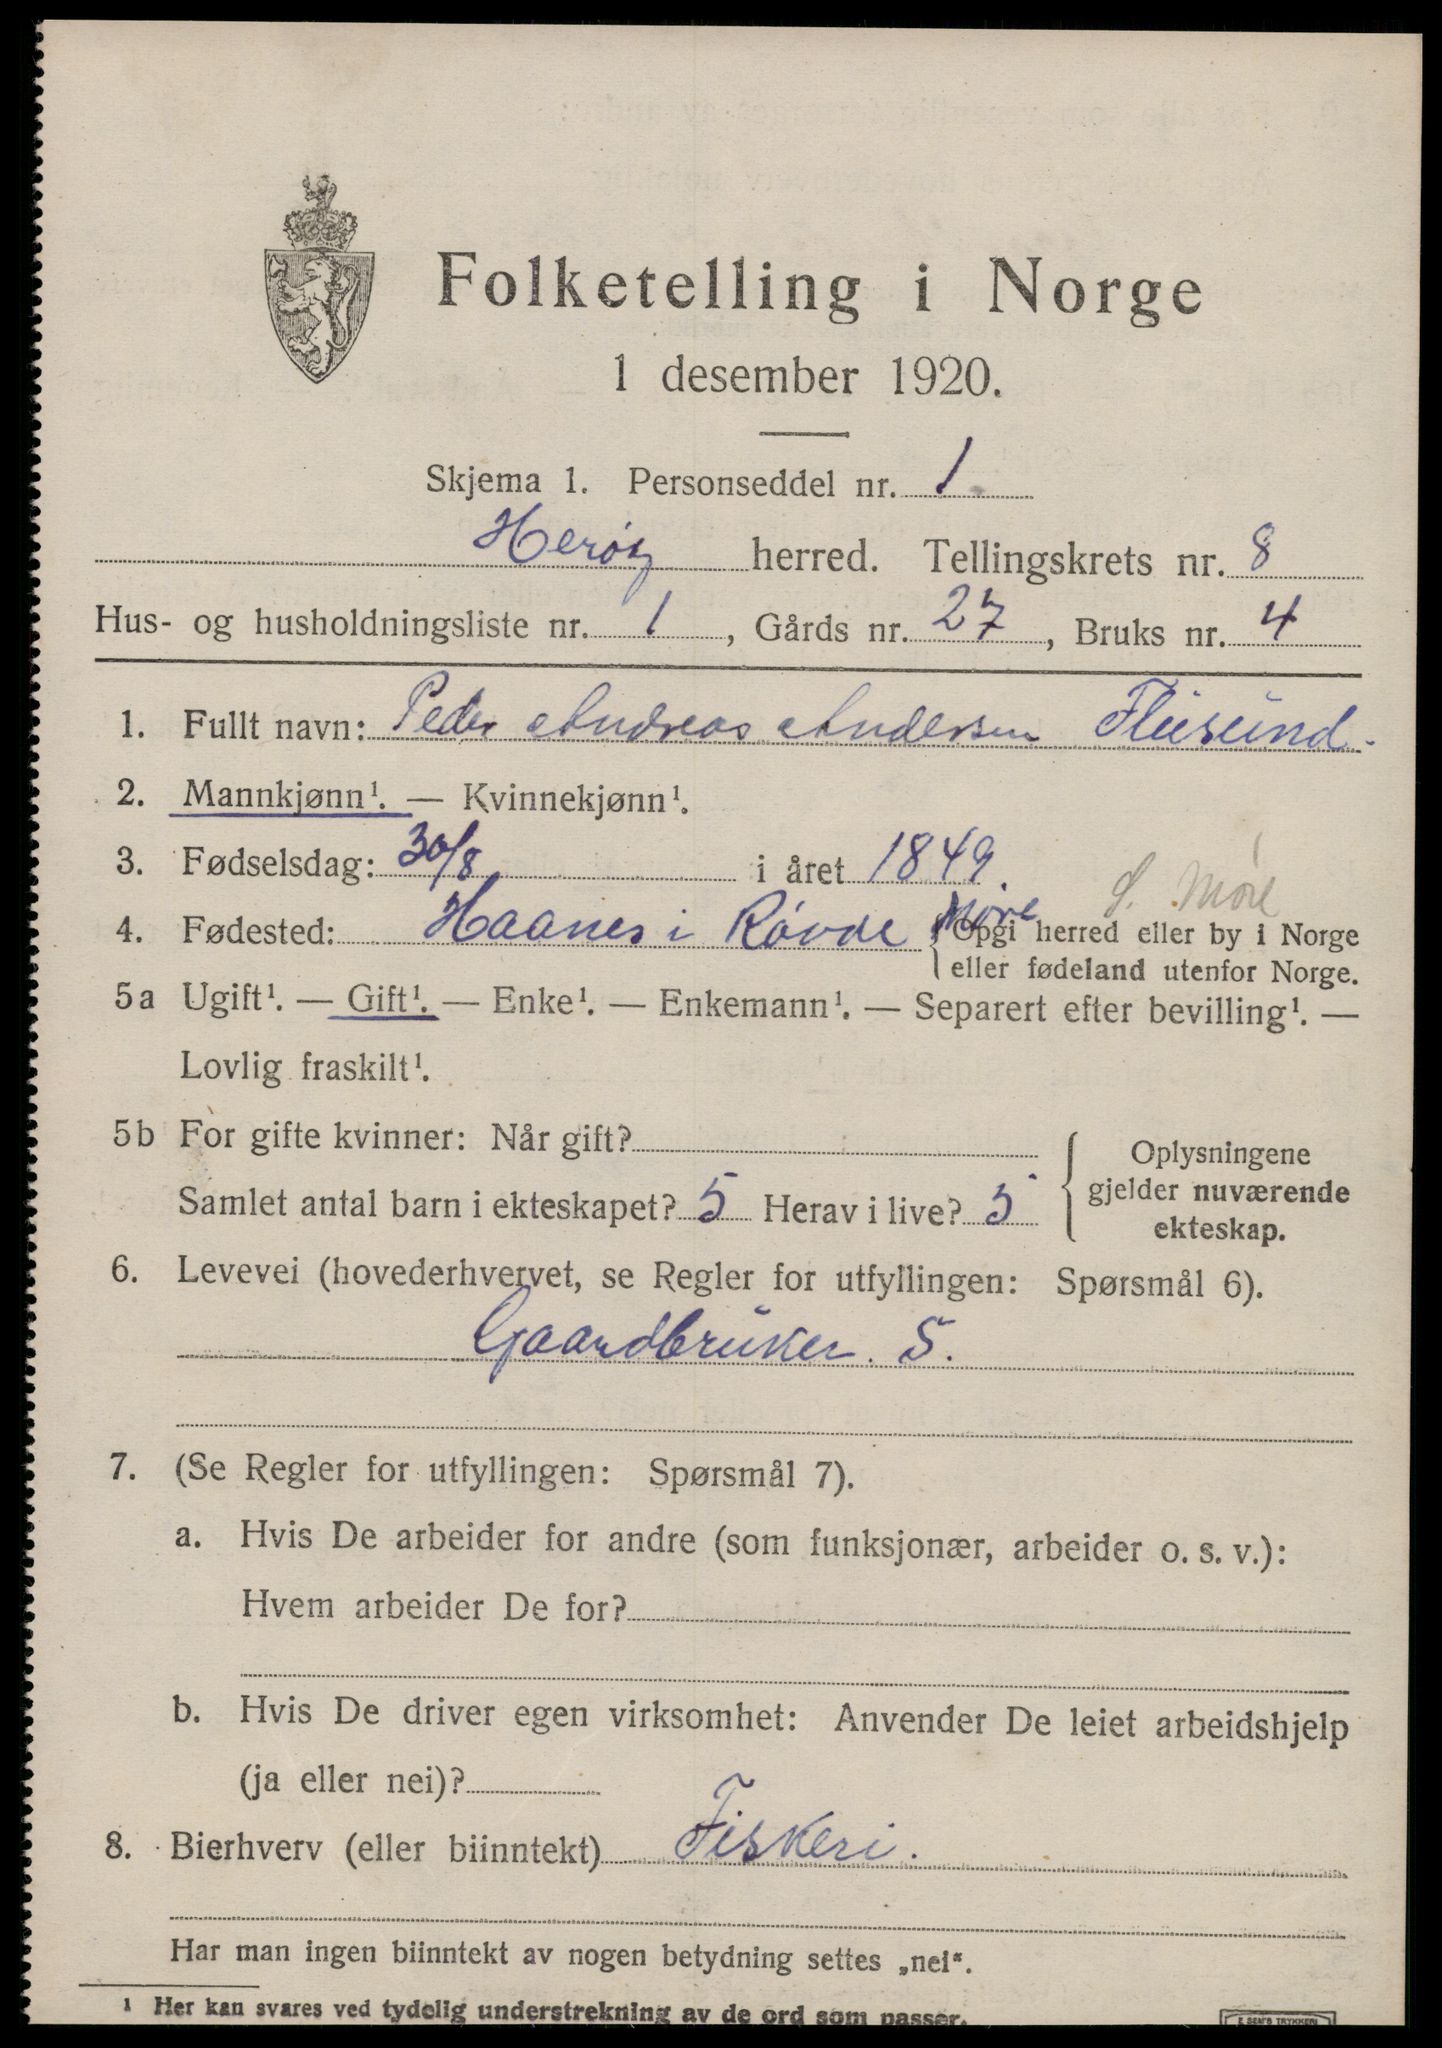 Folketelling i Norge
1 desember 1920.
Skjema 1. Personseddel nr. 1
Herøy herred. Tellingskrets nr. 8
Hus- og husholdningsliste nr. 1, Gårds nr. 27, Bruks nr. 4
1. Fullt navn: Peder Andreas Andersen Flusund.
2. Mannkjønn¹. — Kvinnekjønn¹.
3. Fødselsdag: 30/8 i året 1849.
S. Møre
4. Fødested: Haanes i Røvde Møre {Opgi herred eller by i Norge
eller fødeland utenfor Norge.
5a Ugift¹. — Gift¹. — Enke¹. — Enkemann¹. — Separert efter bevilling¹. —
Lovlig fraskilt¹.
5b For gifte kvinner: Når gift?
Samlet antal barn i ekteskapet? 5 Herav i live? 5
Oplysningene
gjelder nuværende
ekteskap.
6. Levevei (hovederhvervet, se Regler for utfyllingen: Spørsmål 6).
Gaardbruker. S.
7. (Se Regler for utfyllingen: Spørsmål 7).
a. Hvis De arbeider for andre (som funksjonær, arbeider o. s. v.):
Hvem arbeider De for?
b. Hvis De driver egen virksomhet: Anvender De leiet arbeidshjelp
(ja eller nei)?
8. Bierhverv (eller biinntekt) Fiskeri.
Har man ingen biinntekt av nogen betydning settes „nei“.
1 Her kan svares ved tydelig understrekning av de ord som passer.